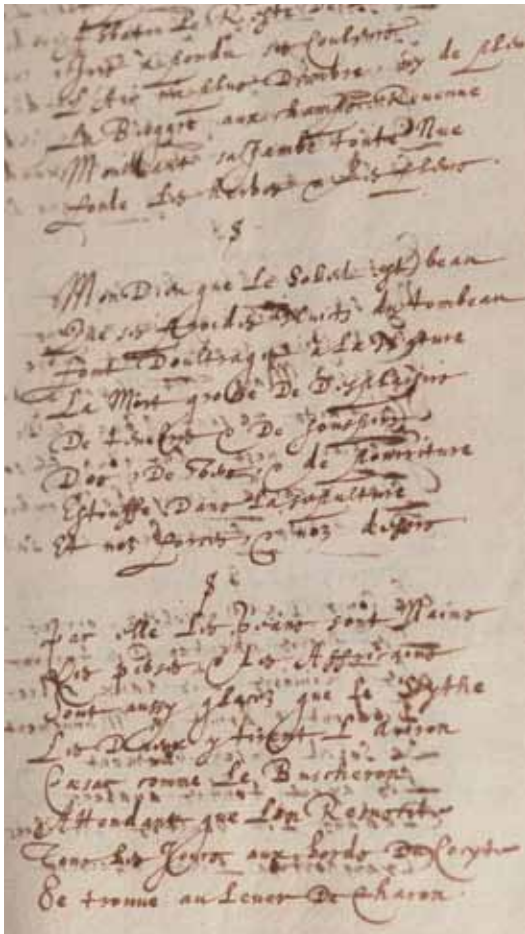 Le Reste
a fondu ses Couleurs
L'Air plus D'ombre ny de
La Bergere aux champs Reuenue
Mouillant sa Jambe toute Nue
foule Les Herbes & Les fleurs.
§
Mon Dieu que Le Soleil est beau
Que les froides Nuits du tombeau
Font Doultrages a La Nature
La Mort grosse De Desplaisirs
De tenebres & De souspirs
D'os De Vers & de pourriture
Estouffe Dans La sepulture
Et nos forces & nos desirs
§
Par elle Les Geans sont Nains
Les & Les Affricains
Sont aussy glacez que le Scythe
Les Dieux y tirent L'auiron
Cesar comme Le Buscheron
Attendant que Lon Resuscite
Tous les Jours aux bords Du Cocyte
Se trouue au Leuer De Charon.